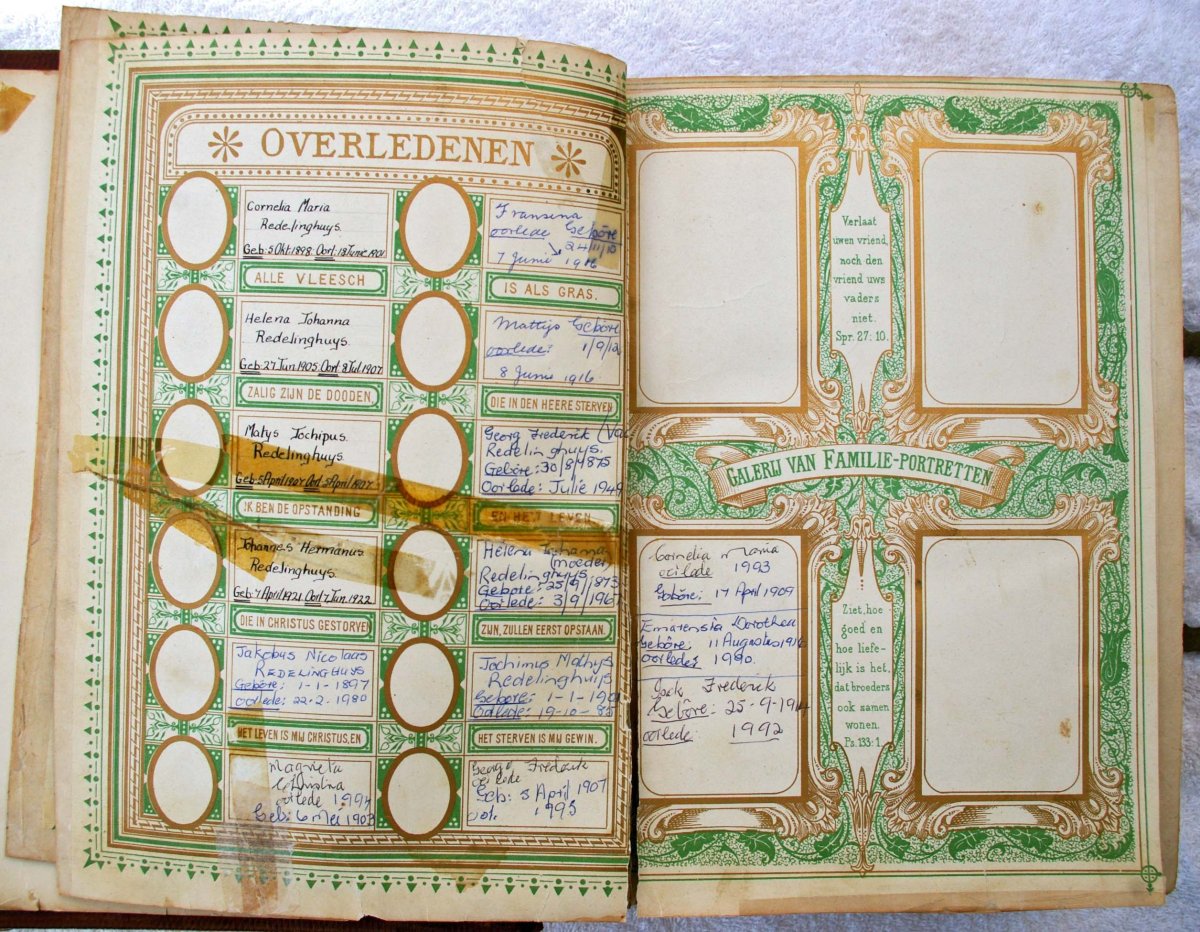 OVERLEDENEN
Cornelia Maria
Redelinghuys.
Geb: 5 Okt 1898 Oorl: 18 Junie 1901
ALLE VLEESCH
Helena Johanna
Redelinghuys.
Geb: 27 Jun 1905 Oorl: 8 Jul 1907
ZALIG ZIJN DE DOODEN,
Matys Jochipus.
Redelinghuys.
Geb: 5 April 1907 Oorl: 5 April 1907
IK BEN DE OPSTANDING
Johannes Hermanus
Redelinghuys.
Geb: 7 April 1921 Oorl: 7 Jun. 1922
DIE IN CHRISTUS GESTORVEN
Jakobus Nicolaas
REDELINGHUYS
Gebôre: 1-1-1897
Oorlede: 22-2-1980
HET LEVEN IS MIJ CHRISTUS, EN
Magrieta
Christina
oorlede 1994
Geb: 6 Mei 1903
Fransina
oorlede Gebôre
24/11/10
7 Junie 1916
IS ALS GRAS.
Mattijs Gebôre
oorlede: 1/9/12
8 Junie 1916
DIE IN DEN HEERE STERVEN
Georg Frederik
Redelinghuys.
Gebôre: 30/8/1875
Oorlede: Julie 1949
EN HET LEVEN
Helena Johanna
(moeder)
Redelinghuys
Gebore: 25/9/1873
Oorlede: 3/9/1967
ZIJN, ZULLEN EERST OPSTAAN.
Jochimus Mathys
Redelinghuijs
Gebôre: 1-1-1901
Oorlede: 19-10-85
HET STERVEN IS MIJ GEWIN.
George Frederik
oorlede
Geb: 3 April 1907
oorl. 1995
Verlaat
uwen vriend,
noch den
vriend uws
vaders
niet.
Spr. 27:10.
GALERIJ VAN FAMILIE-PORTRETTEN
Cornelia Maria
oorlede 1993
Gebôre: 17 April 1909
Emarensia Dorothea
Gebôre: 11 Augustus 1916
oorlede: 1990.
Frederick
Gebôre: 25-9-1914
oorlede: 1992
Ziet, hoe
goed en
hoe liefe-
lijk is het,
dat broeders
ook samen
wonen.
Ps. 133:1.